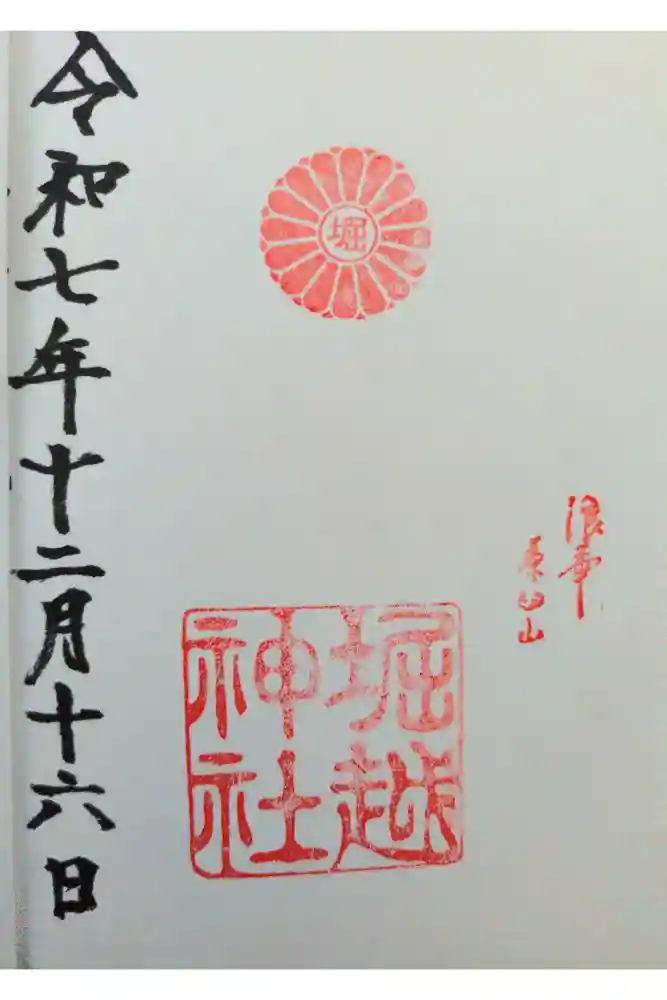 堀
浪華
茶臼山
堀越
神社
令和七年十二月十六日